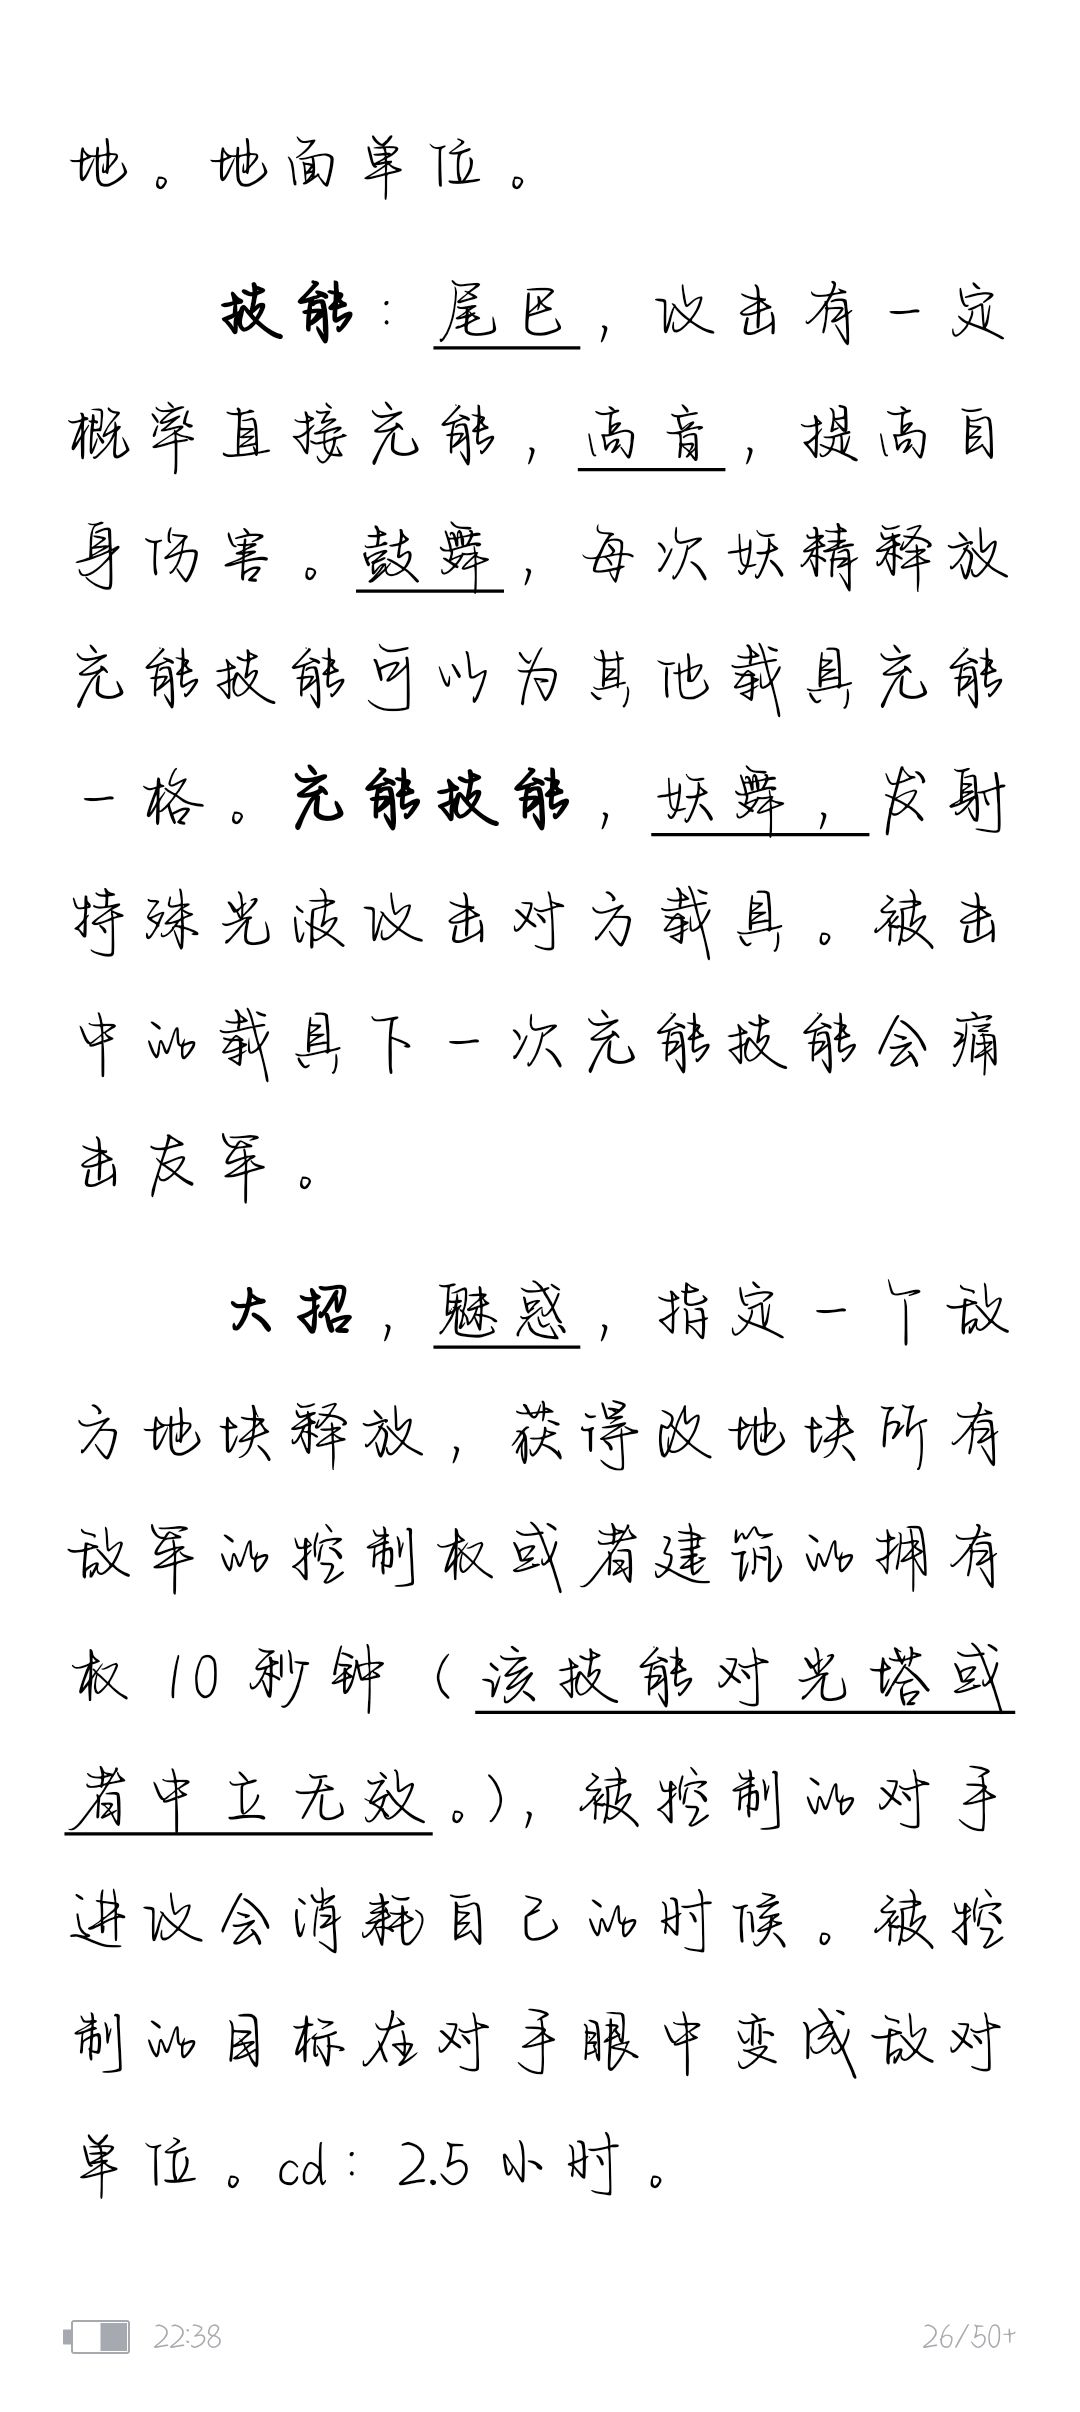 地。地面单位。
技能：尾巴，攻击有一定
概率直接充能，高音，提高自
身伤害。鼓舞，每次妖精释放
充能技能可以为其他载具充能
一格。充能技能，妖舞，发射
特殊光波攻击对方载具。被击
中的载具下一次充能技能会痛
击友军。
大招，魅惑，指定一个敌
方地块释放，获得改地块所有
敌军的控制权或者建筑的拥有
权10秒钟（该技能对光塔或
者中立无效。），被控制的对手
进攻会消耗自己的时候。被控
制的目标在对手眼中变成敌对
单位。cd：2.5小时。
22:38
26/50+